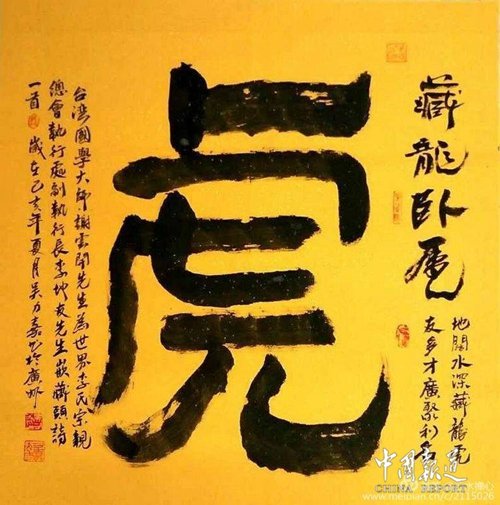 藏龍卧虎
地闊水深藏龍虎
友多才廣聚利
虎
台湾國學大師楊雲開先生為世界李氏宗親
總會執行處副執行長李地友先生嵌藏頭詩
一首 歲在己亥年夏月吴力嘉书於廣州
中国报道
CHINA REPORT
www.meipian.cn/c/2115026